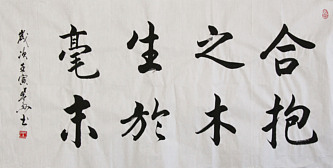 合抱
之木
生於
毫末
歲次